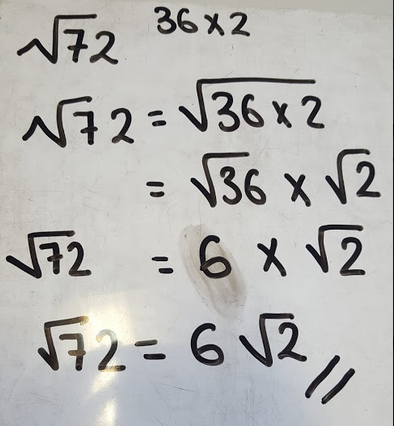 √72 36×2
√72 = √36 × 2
= √36 × √2
√72 = 6 × √2
√72 = 6 √2 //